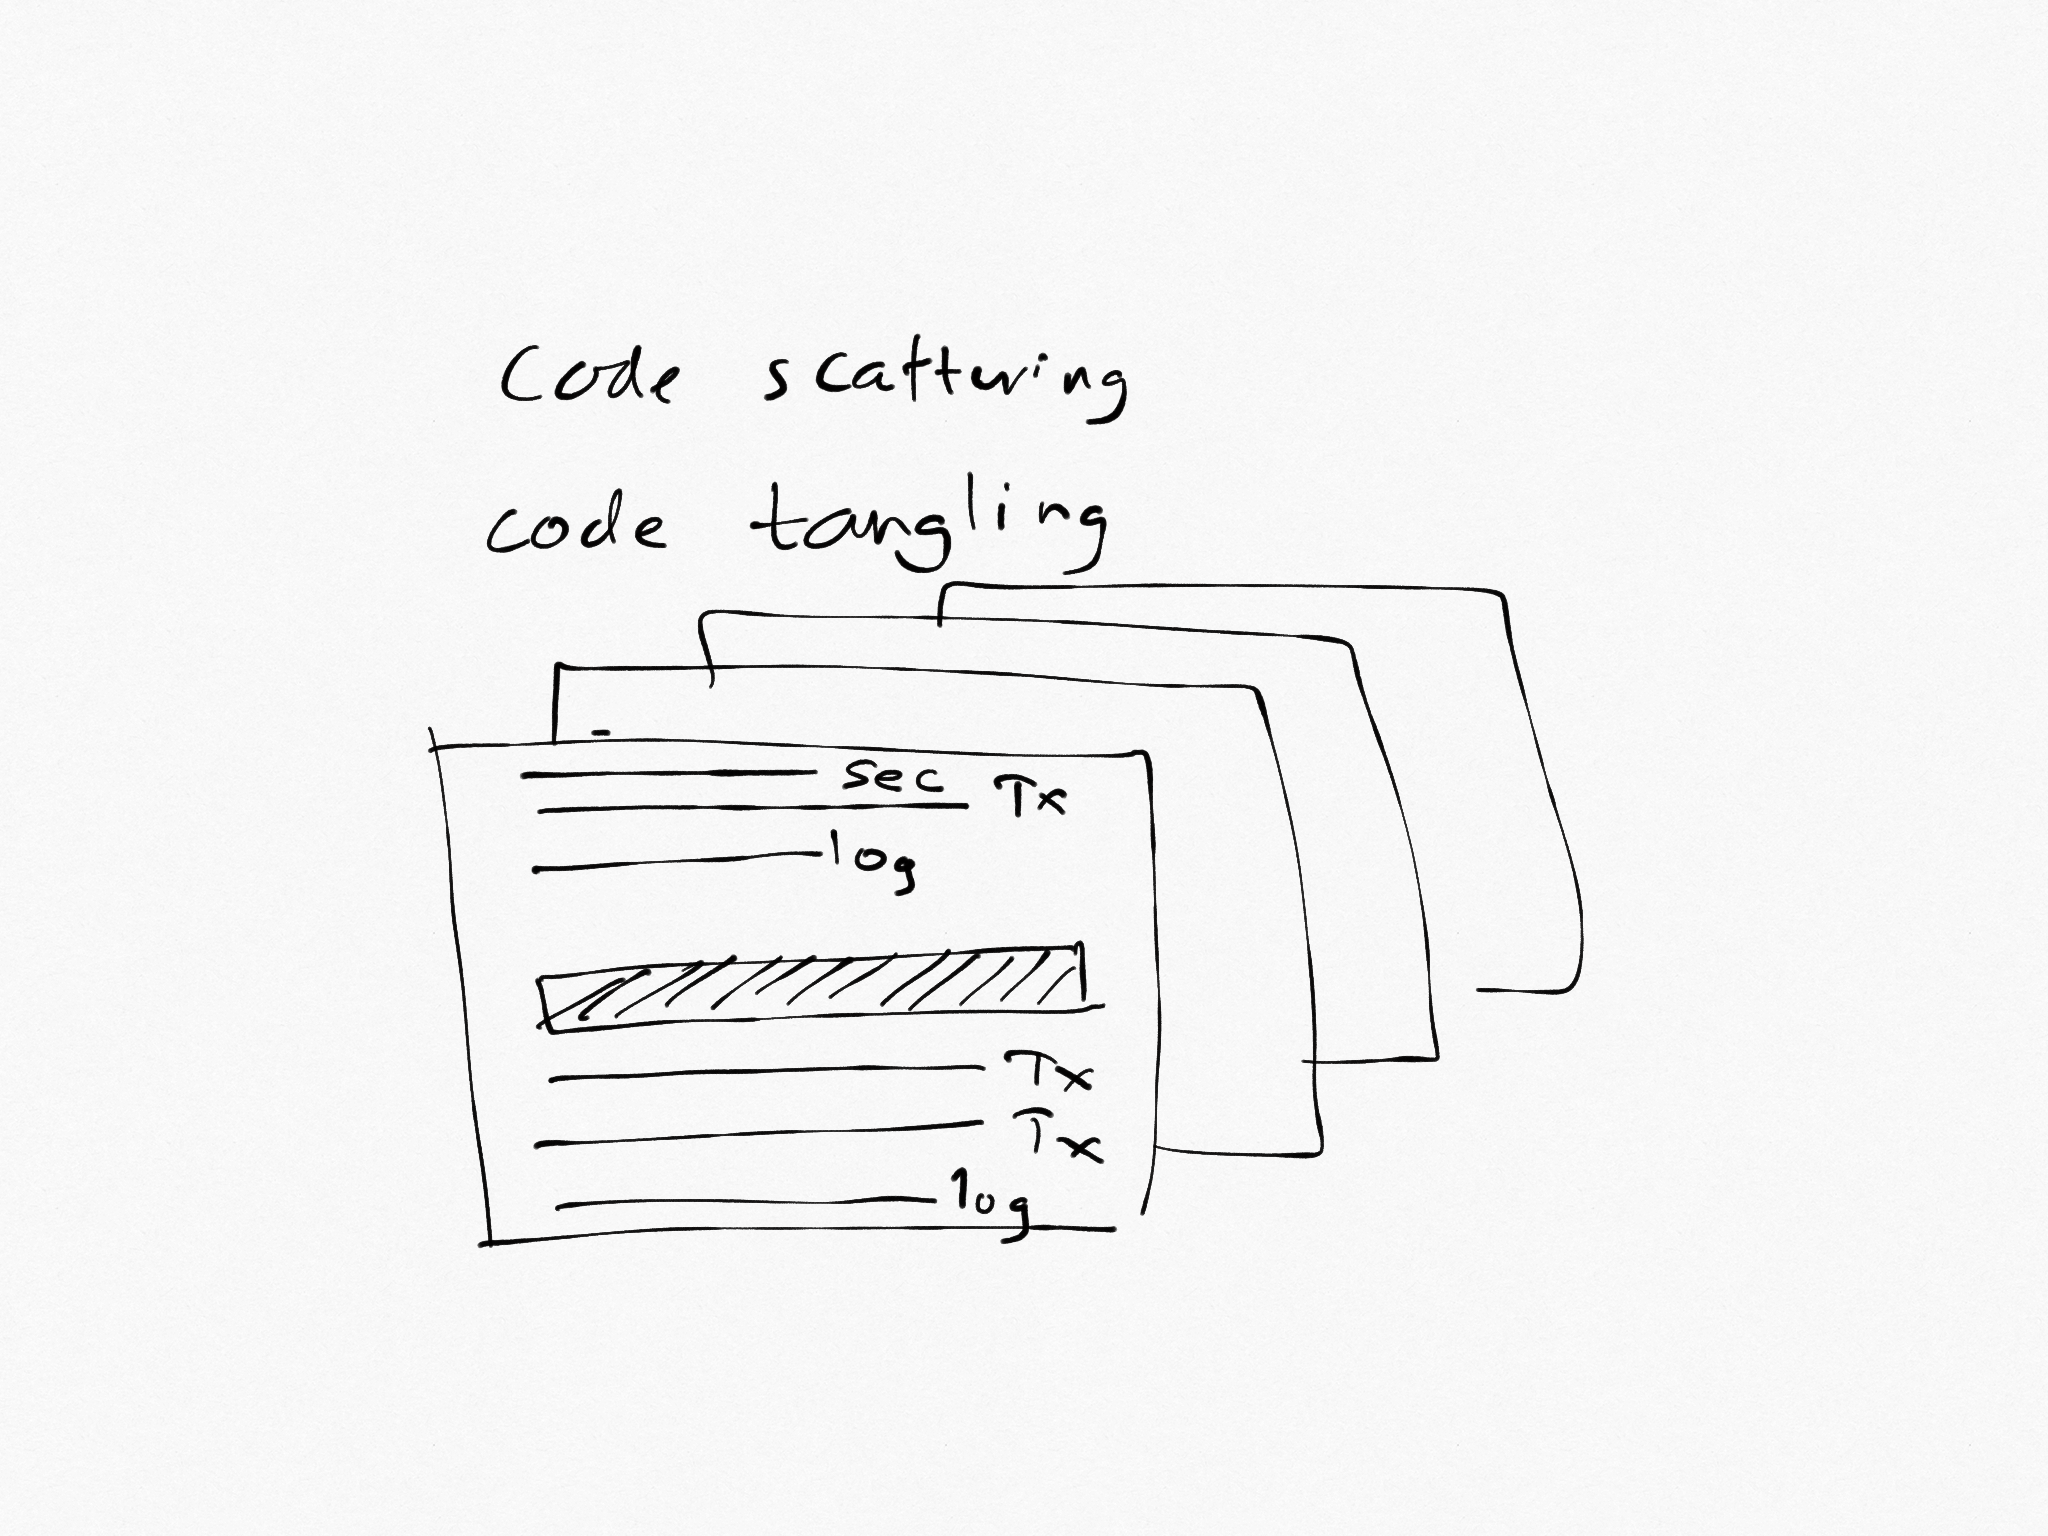 Code scattering
code tangling
sec
Tx
log
Tx
Tx
log